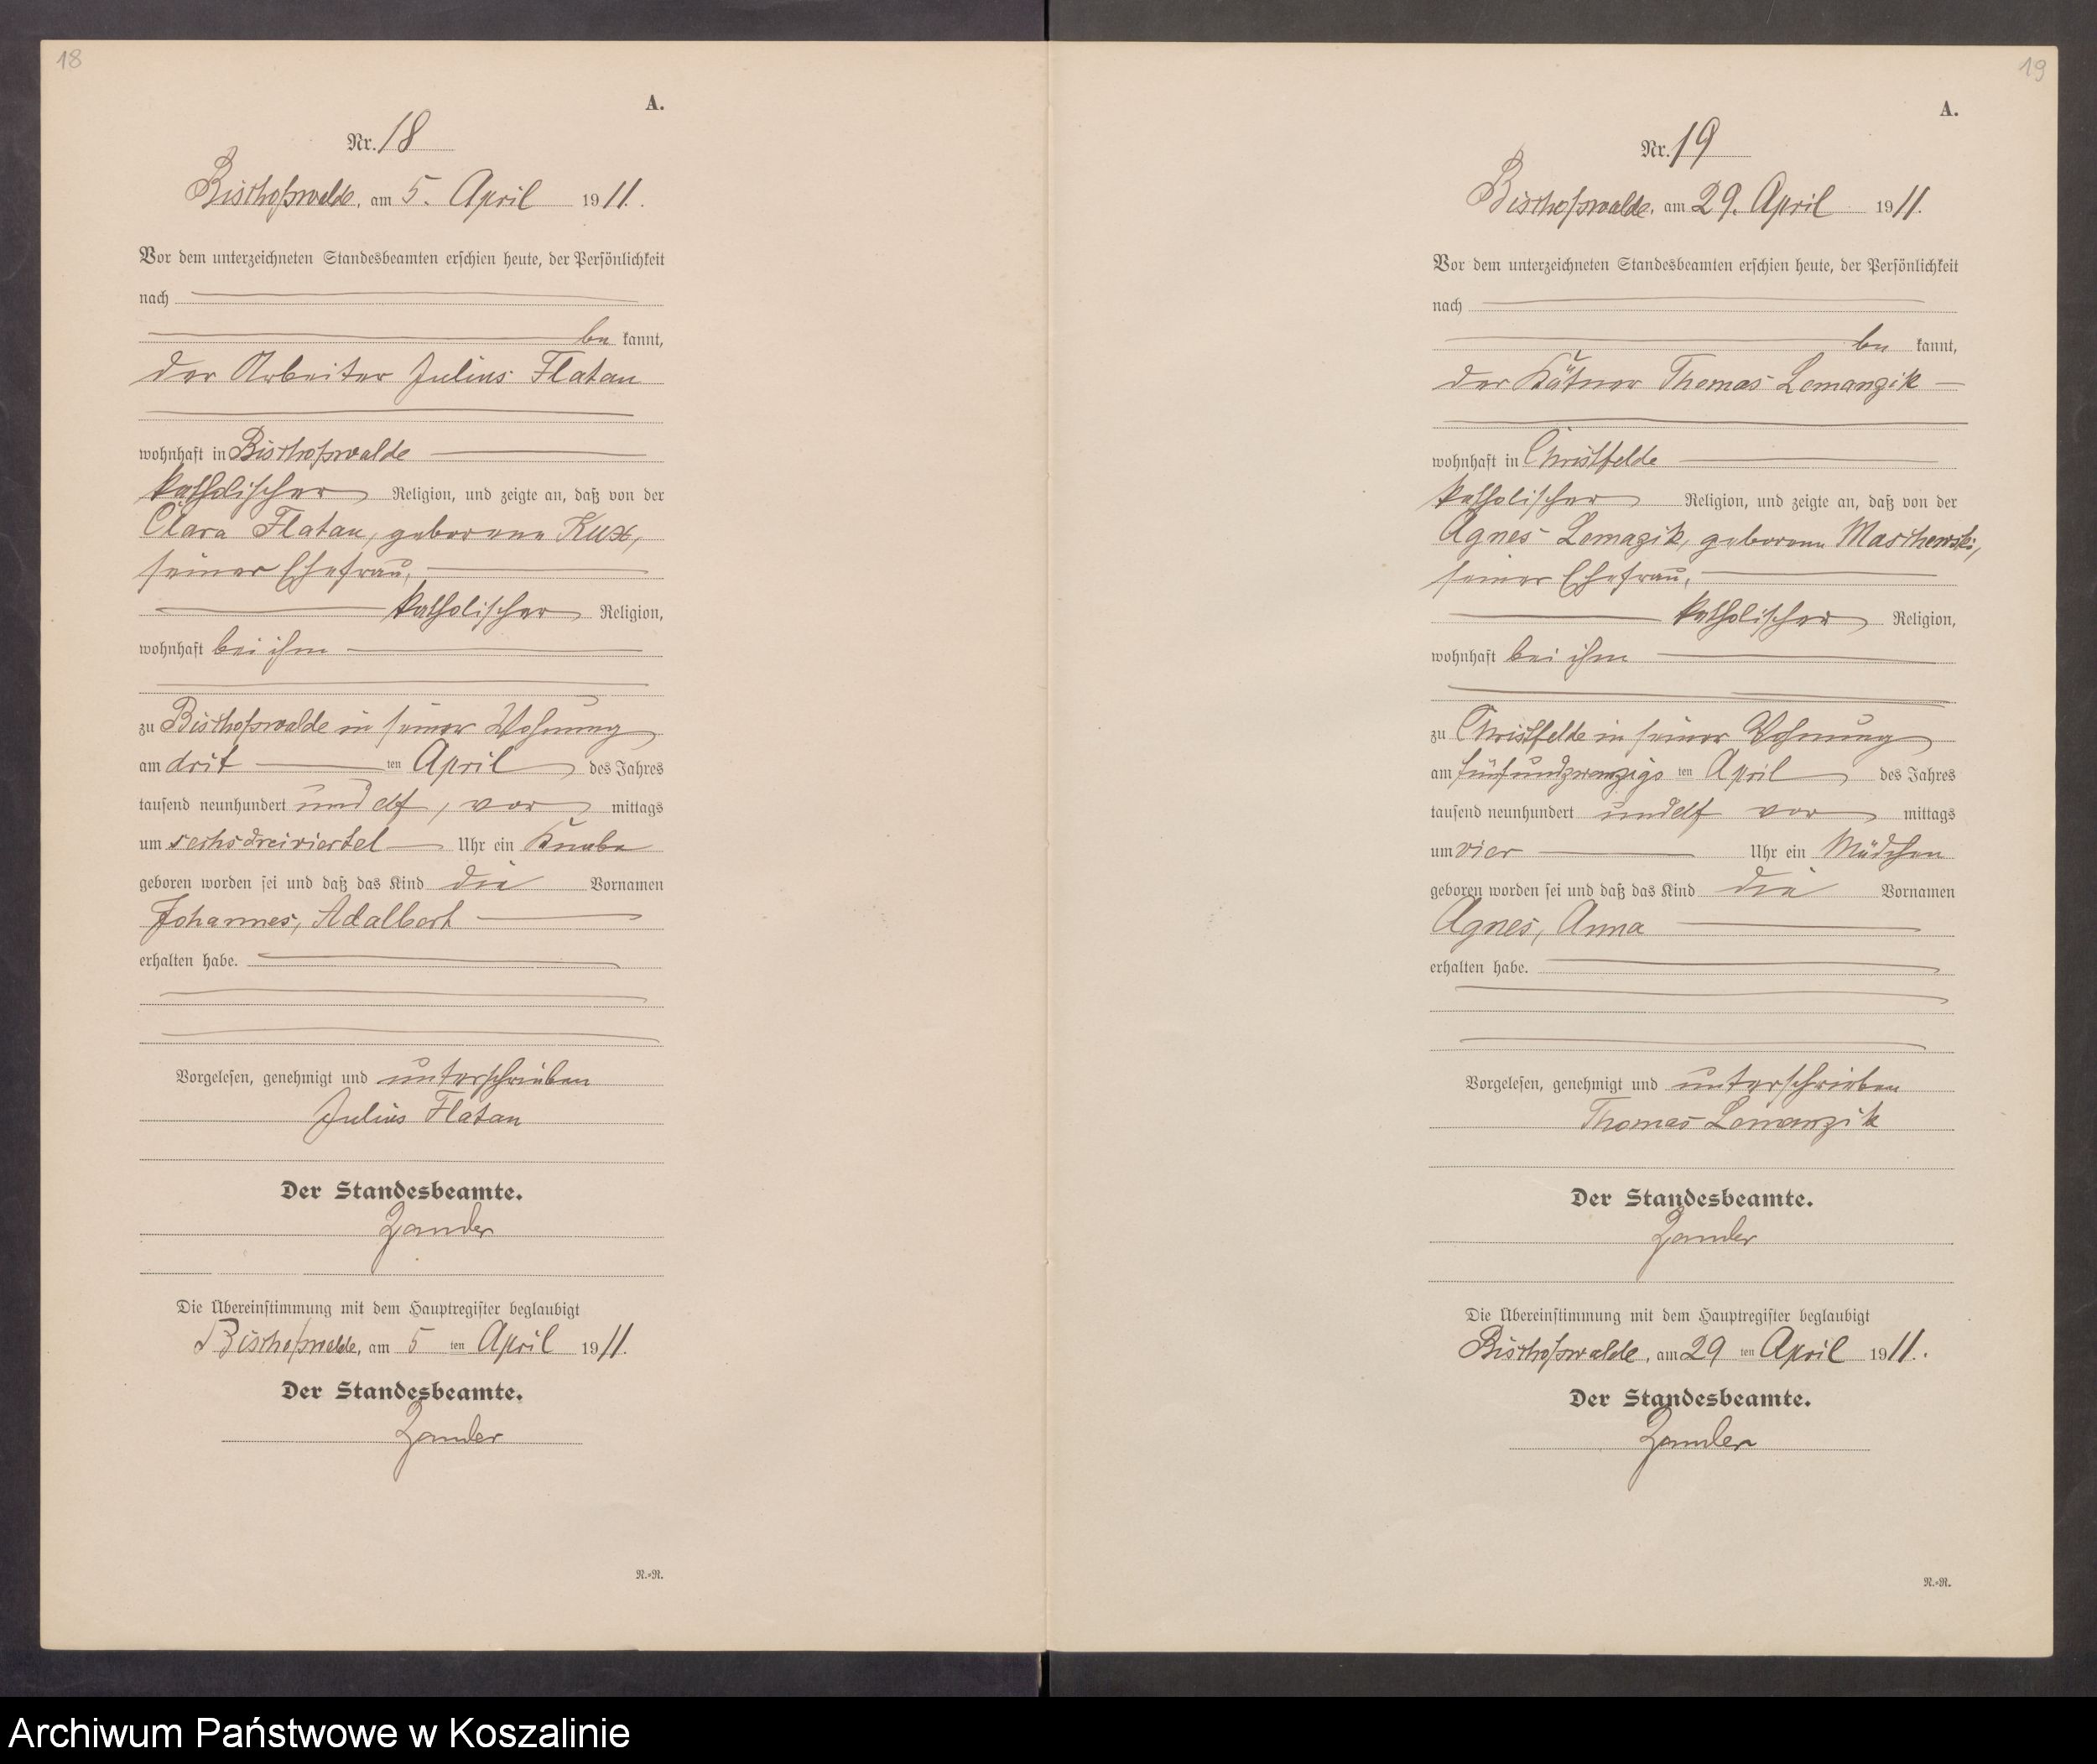 18
A.
Nr. 18
Bischofswalde, am 5. April 1911.
Vor dem unterzeichneten Standesbeamten erschien heute, der Persönlichkeit
nach
be kannt,
der Arbeiter Julius Flatau
wohnhaft in Bischofswalde
katholischer Religion, und zeigte an, daß von der
Clara Flatau, geborene Kux,
seiner Ehefrau,
katholischer Religion,
wohnhaft bei ihm
zu Bischofswalde in seiner Wohnung
am drit ten April des Jahres
tausend neunhundert und elf, vor mittags
um sechsdreiviertel Uhr ein Knabe
geboren worden sei und daß das Kind die Vornamen
Johannes, Adalbert
erhalten habe.
Vorgelesen, genehmigt und unterschrieben
Julius Flatau
Der Standesbeamte.
Zander
Die Übereinstimmung mit dem Hauptregister beglaubigt
Bischofswalde, am 5 ten April 1911.
Der Standesbeamte.
Zander
N.=R.
19
A.
Nr. 19
Bischofswalde, am 29. April 1911.
Vor dem unterzeichneten Standesbeamten erschien heute, der Persönlichkeit
nach
be kannt,
der Kätner Thomas Lemanzik
wohnhaft in Christfelde
katholischer Religion, und zeigte an, daß von der
Agnes Lemazik, geborene Maschewski,
seiner Ehefrau,
katholischer Religion,
wohnhaft bei ihm
zu Christfelde in seiner Wohnung
am fünfundzwanzigs ten April des Jahres
tausend neunhundert undelf vor mittags
um vier Uhr ein Mädchen
geboren worden sei und daß das Kind die Vornamen
Agnes, Anna
erhalten habe.
Vorgelesen, genehmigt und unterschrieben
Thomas Lemanzik
Der Standesbeamte.
Zander
Die Übereinstimmung mit dem Hauptregister beglaubigt
Bischofswalde, am 29 ten April 1911.
Der Standesbeamte.
Zander
N.=R.
Archiwum Państwowe w Koszalinie